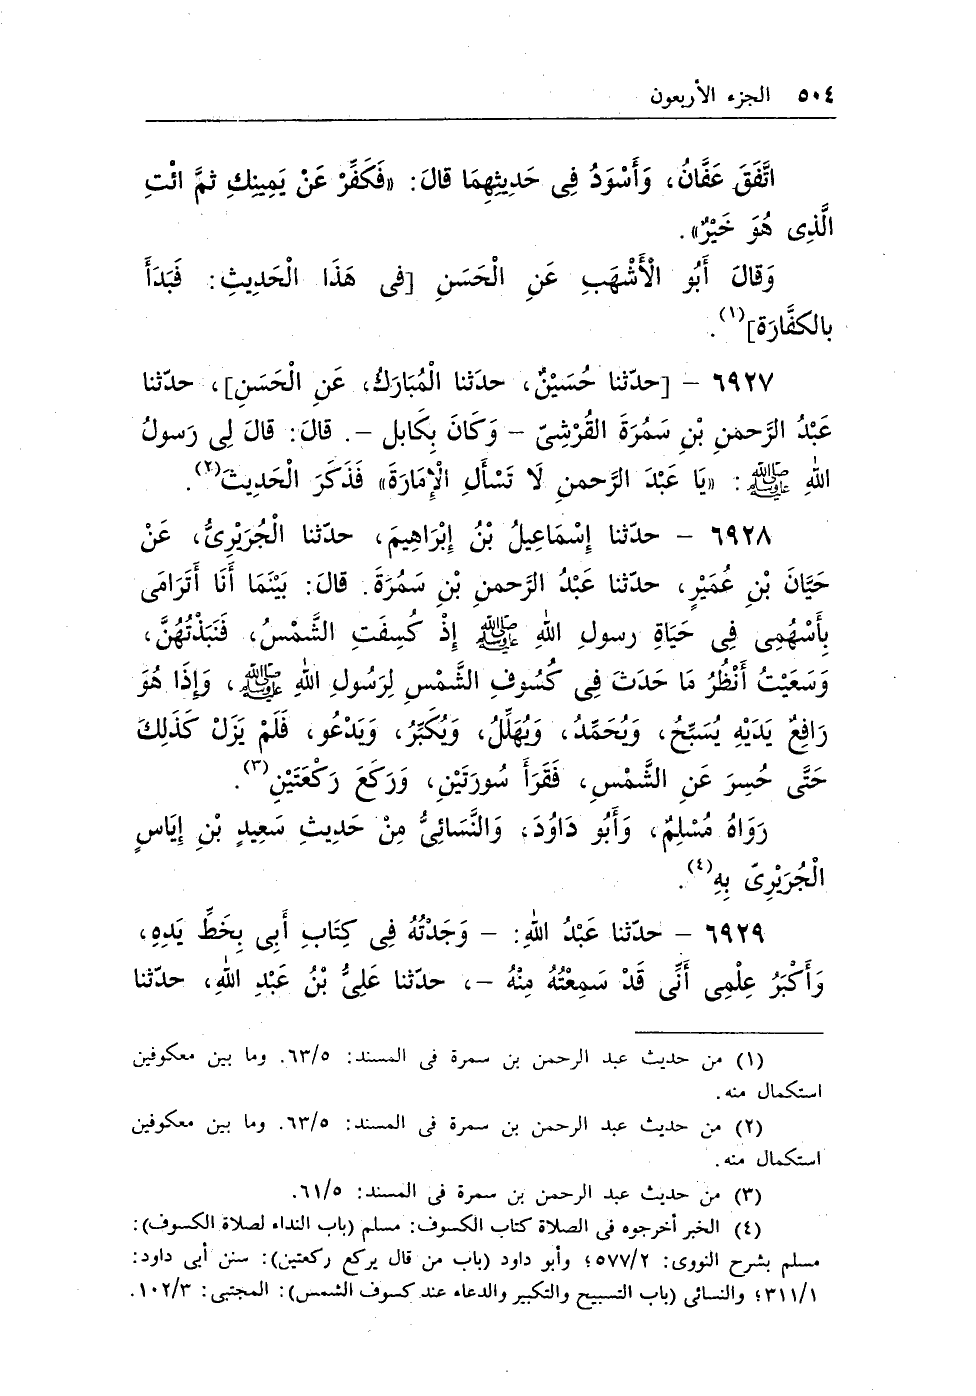 ٥٠٤ الجزء الأربعون
اتَّفَقَ عَفَّانُ، وَأَسْوَدُ فِى حَدِيثِهِمَا قالَ: «فَكَفِّرْ عَنْ يَمِينِكِ ثمَّ ائْتِ
الَّذِى هُوَ خَيْرٌ».
وَقالَ أَبُو الْأَشْهَبِ عَنِ الْحَسَنِ [فى هَذَا الْحَدِيثِ: فَبَدَأَ
بالكفَّارَة](١).
٦٩٢٧ - [حدّثنا حُسَيْنٌ، حدَثنا الْمُبَارَكُ، عَنِ الْحَسَنِ]، حدّثنا
عَبْدُ الرَّحمنِ بْنِ سَمُرَةَ القُرْشِىّ - وَكَانَ بِكَابل -. قالَ: قالَ لِى رَسولُ
اللهِ ﷺ: «يَا عَبْدَ الرَّحمنِ لَا تَسْأَلِ الْإِمَارَةَ» فَذَكَرَ الْحَدِيثَ(٢).
٦٩٢٨ - حدّثنا إِسْمَاعِيلُ بْنُ إِبْرَاهِيمَ، حدّثنا الْجُرَيْرِىُّ، عَنْ
حَيَّانَ بْنِ عُمَيْرٍ، حدّثنا عَبْدُ الرَّحمنِ بْنِ سَمُرَةَ. قالَ: بَيْنَمَا أَنَا أَتَرَامَى
بِأَسْهُمِى فِى حَيَاةِ رسولِ اللهِ ﷺ إِذْ كُسِفَتِ الشَّمْسُ، فَنَبَذْتُهُنَّ،
وَسَعَيْتُ أَنْظُرُ مَا حَدَثَ فِى كُسُوفِ الشَّمْسِ لِرَسُولِ اللهِ ﷺ، وَإِذَا هُوَ
رَافِعٌ يَدَيْهِ يُسَبِّحُ، وَيُحَمِّدُ، وَيُهَلِّلُ، وَيُكَبِّرُ، وَيَدْعُو، فَلَمْ يَزَلْ كَذَلِكَ
حَتَّى حُسِرَ عَنِ الشَّمْسِ، فَقَرَأَ سُورَتَيْنِ، وَرَكَعَ رَكْعَتَيْنِ(٣).
رَوَاهُ مُسْلِمٌ، وَأَبُو دَاوُدَ، وَالنَّسَائِىُّ مِنْ حَدِيثِ سَعِيدٍ بْنِ إِيَاسٍ
الْجُرَيْرِىّ بِهِ(٤).
٦٩٢٩ - حدّثنا عَبْدُ اللهِ: - وَجَدْتُهُ فِى كِتَابِ أَبِى بِخَطِّ يَدِهِ،
وَأَكْبَرُ عِلْمِى أَنِّى قَدْ سَمِعْتُهُ مِنْهُ -، حدّثنا عَلِىُّ بْنُ عَبْدِ اللهِ، حدّثنا
(١) من حديث عبد الرحمن بن سمرة فى المسند: ٦٣/٥. وما بين معكوفين
استكمال منه.
(٢) من حديث عبد الرحمن بن سمرة فى المسند: ٦٣/٥. وما بين معكوفين
استكمال منه.
(٣) من حديث عبد الرحمن بن سمرة فى المسند: ٦١/٥.
(٤) الخبر أخرجوه فى الصلاة كتاب الكسوف: مسلم (باب النداء لصلاة الكسوف):
مسلم بشرح النووى: ٥٧٧/٢؛ وأبو داود (باب من قال يركع ركعتين): سنن أبى داود:
٣١١/١؛ والنسائى (باب التسبيح والتكبير والدعاء عند كسوف الشمس): المجتبى: ١٠٢/٣.